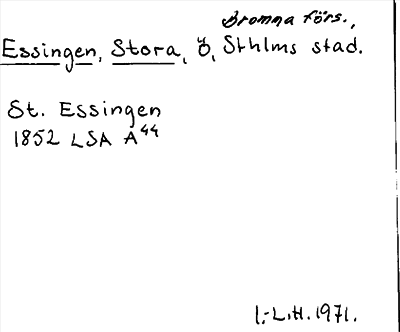 Bromma förs.,
Essingen, Stora, ö, Sthlms stad.
St. Essingen
1852 LSA A44
I.-L.H. 1971.